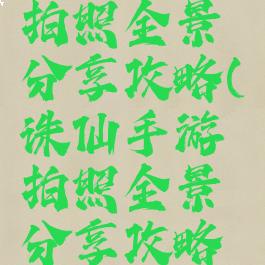 拍照全景
分享攻略(
诛仙手游
拍照全景
分享攻略